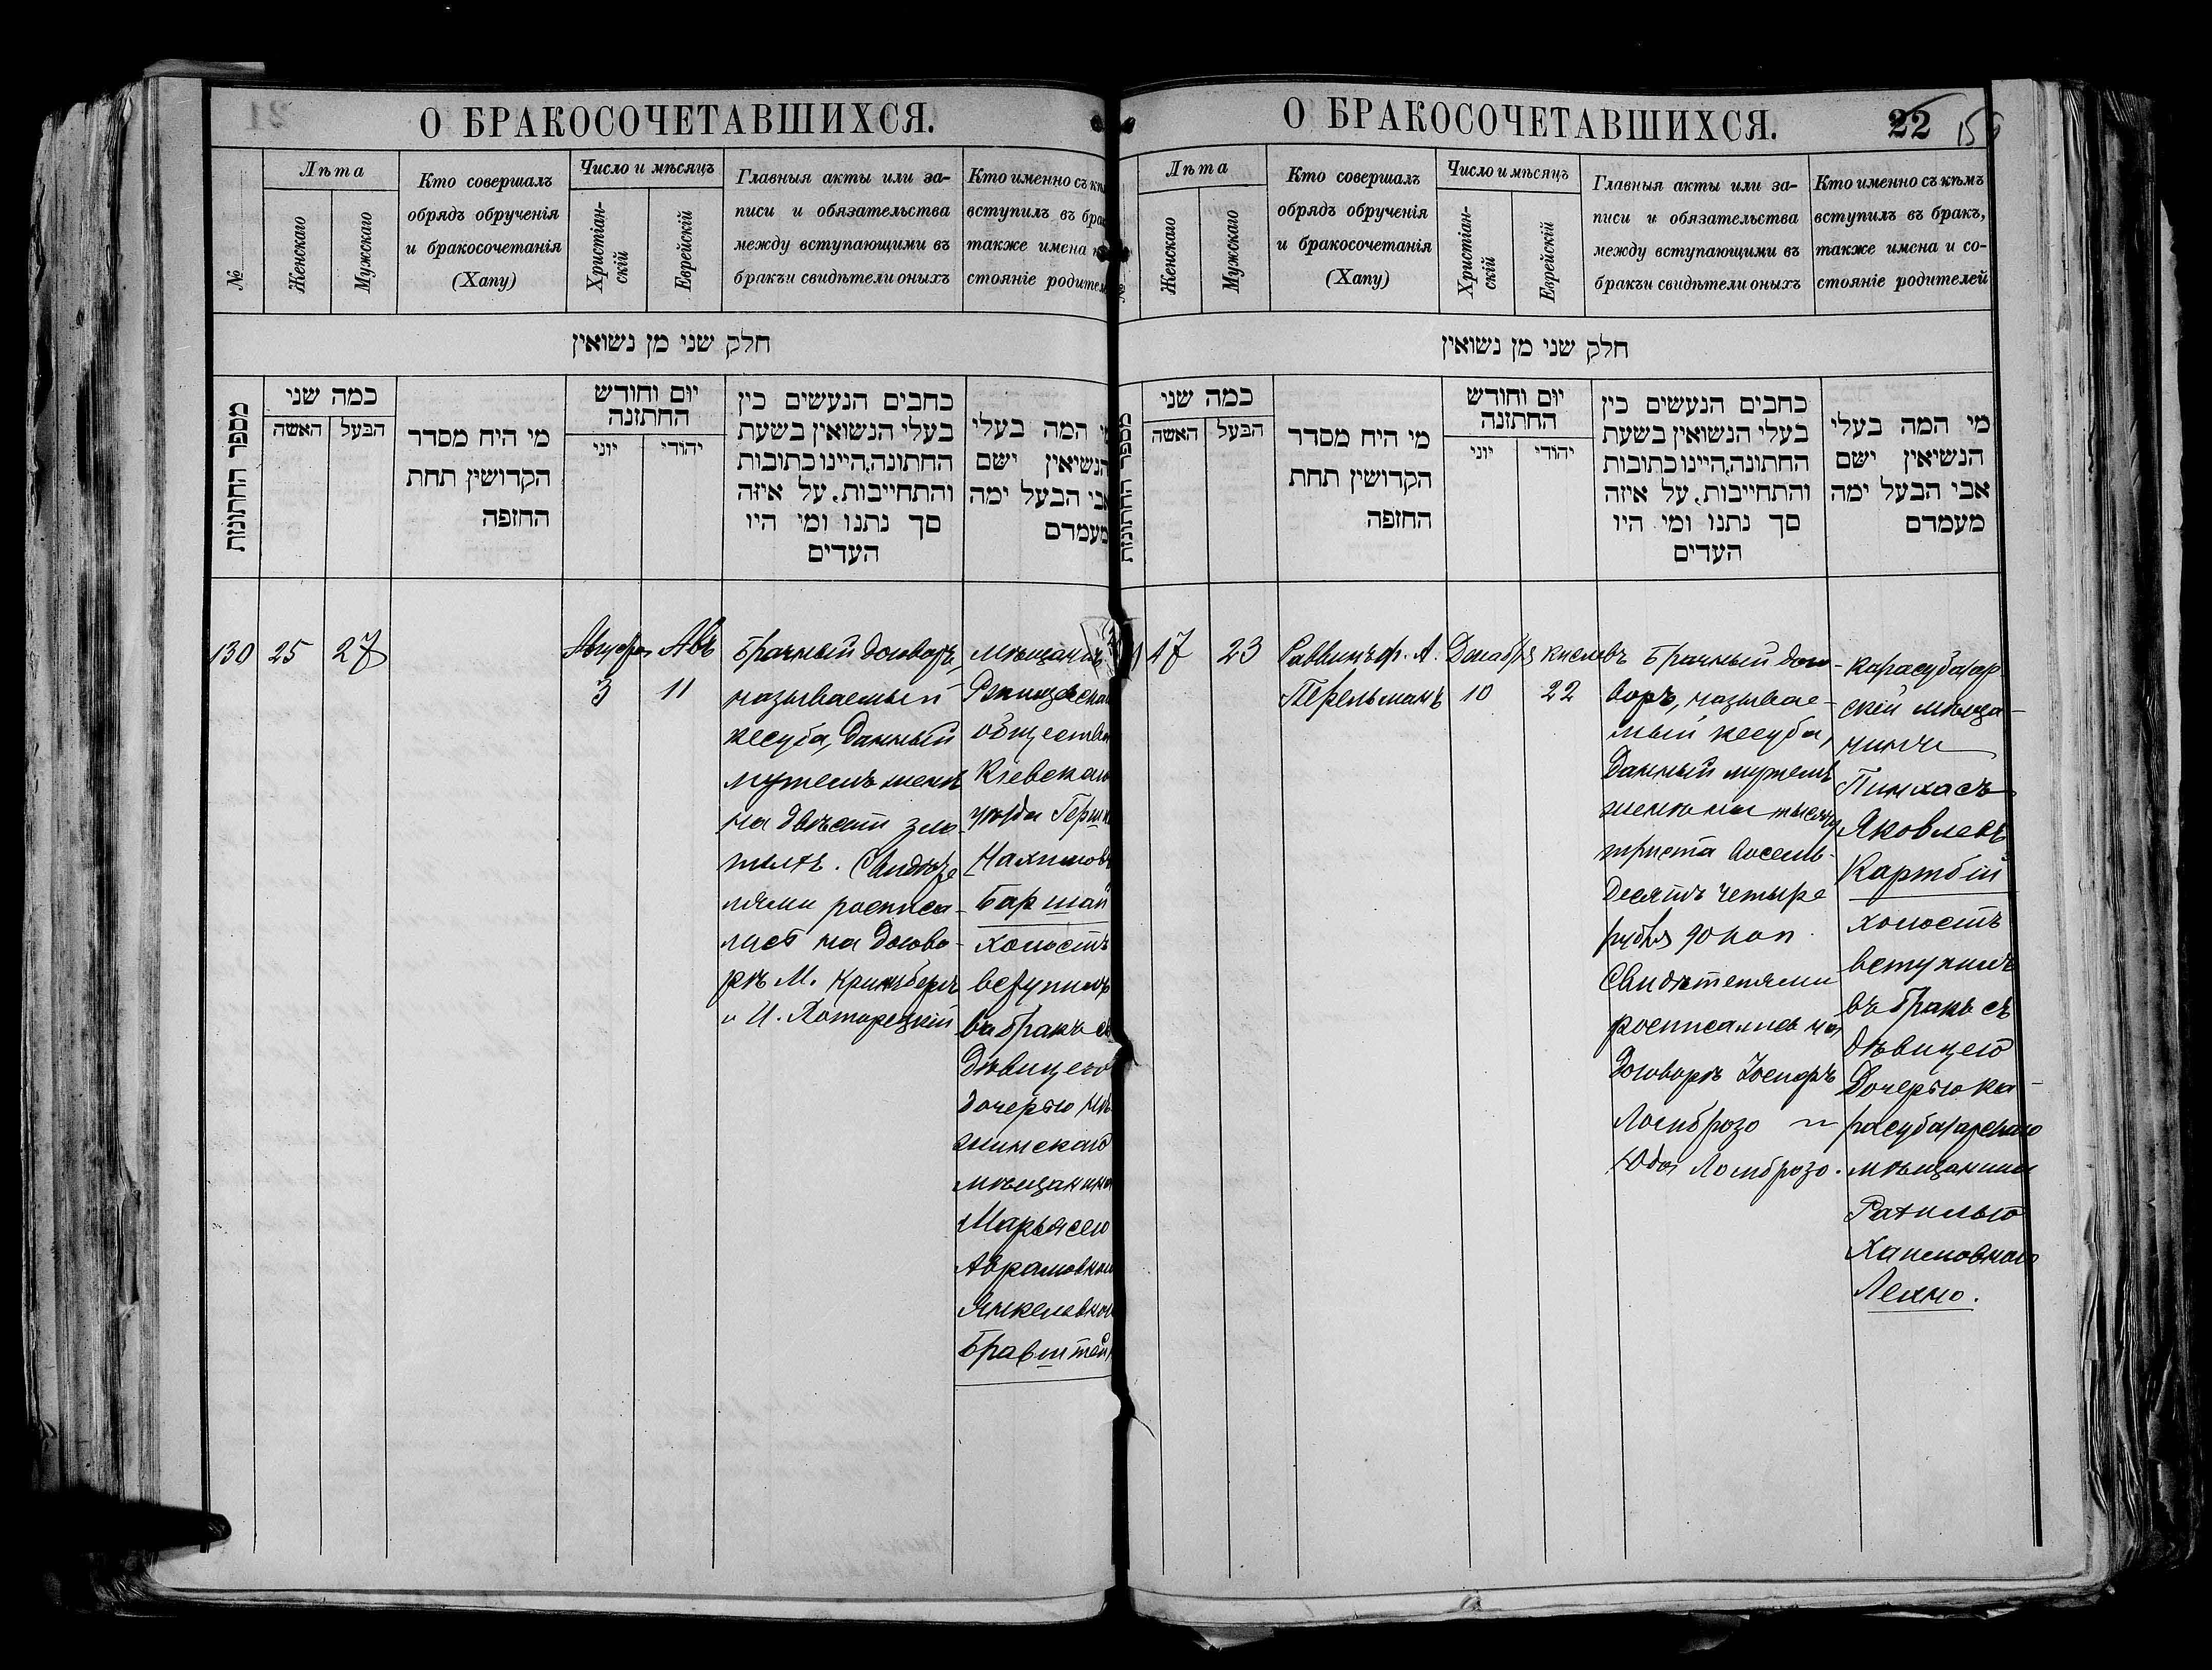 О БРАКОСОЧЕТАВШИХСЯ.
№
Лѣта
Женскаго
Мужскаго
Кто совершалъ
обрядъ обрученія
и бракосочетанія
(Хапу)
Число и мѣсяцъ
Христіан-
скій
Еврейскій
Главныя акты или за-
писи и обязательства
между вступающими въ
бракъи свидѣтели оныхъ
Кто именно съ
вступилъ въ
также имена
стояніе
חלק שני מן נשואין
מספר החתונות
כמה שני
האשה
הבעל
מי היח מסדר
הקדושין תחת
החופה
יום וחודש
החתונה
יוני
יהודי
כחבים הנעשים כין
בעלי הנשואין בשעת
החתונה,היינו כתובות
והתחייבות, על איזה
סך נתנו ומי היו
העדים
המה בעלי
הנשיאין ישם
אבי הבעל ימה
מעמדם
130
25
27
Августа
3
Авъ
11
Брачный договоръ,
называемый
кесуба, данный
мужемъ женѣ
на двѣсти зло-
тыхъ. Свидѣте
лями росписа-
лись на догово-
рѣ М. Кринбергъ
и И.
мѣщанинъ
общества
Кіевскаго
уѣзда
холостъ
вступилъ
въ бракъ съ
дѣвицею
дочерью
мѣщанина
Марьясею
Аврамовною
Янкелевною
О БРАКОСОЧЕТАВШИХСЯ.
22
Лѣта
Женскаго
Мужскаго
Кто совершалъ
обрядъ обрученія
и бракосочетанія
(Хапу)
Число и мѣсяцъ
Христіан-
скій
Еврейскій
Главныя акты или за-
писи и обязательства
между вступающими въ
бракъи свидѣтели оныхъ
Кто именно съ кѣмъ
вступилъ въ бракъ,
также имена и со-
стояніе родителей
חלק שני מן נשואין
מספר החתונות
כמה שני
האשה
הבעל
מי היח מסדר
הקדושין תחת
החופה
יום וחודש
החתונה
יוני
יהודי
כחבים הנעשים כין
בעלי הנשואין בשעת
החתונה,היינו כתובות
והתחייבות, על איזה
סך נתנו ומי היו
העדים
מי המה בעלי
הנשיאין ישם
אבי הבעל ימה
מעמדם
17
23
Раввинъ А.
Перельманъ
Декабря
10
Кислевъ
22
Брачный дого-
воръ, называе-
мый кесуба,
данный мужемъ
женѣ на тысячу
триста восемь-
десятъ четыре
рубля 90 коп.
Свидѣтелями
росписались на
договорѣ Іосифъ
Ломброзо и
Юда Ломброзо.
карасубазар-
скій мѣща-
нинъ
Пинхасъ
Яковлевъ
холостъ
вступилъ
въ бракъ съ
дѣвицею
дочерью ка-
расубазарскаго
мѣщанина
Рахилью
Хаимовною
Лехно.